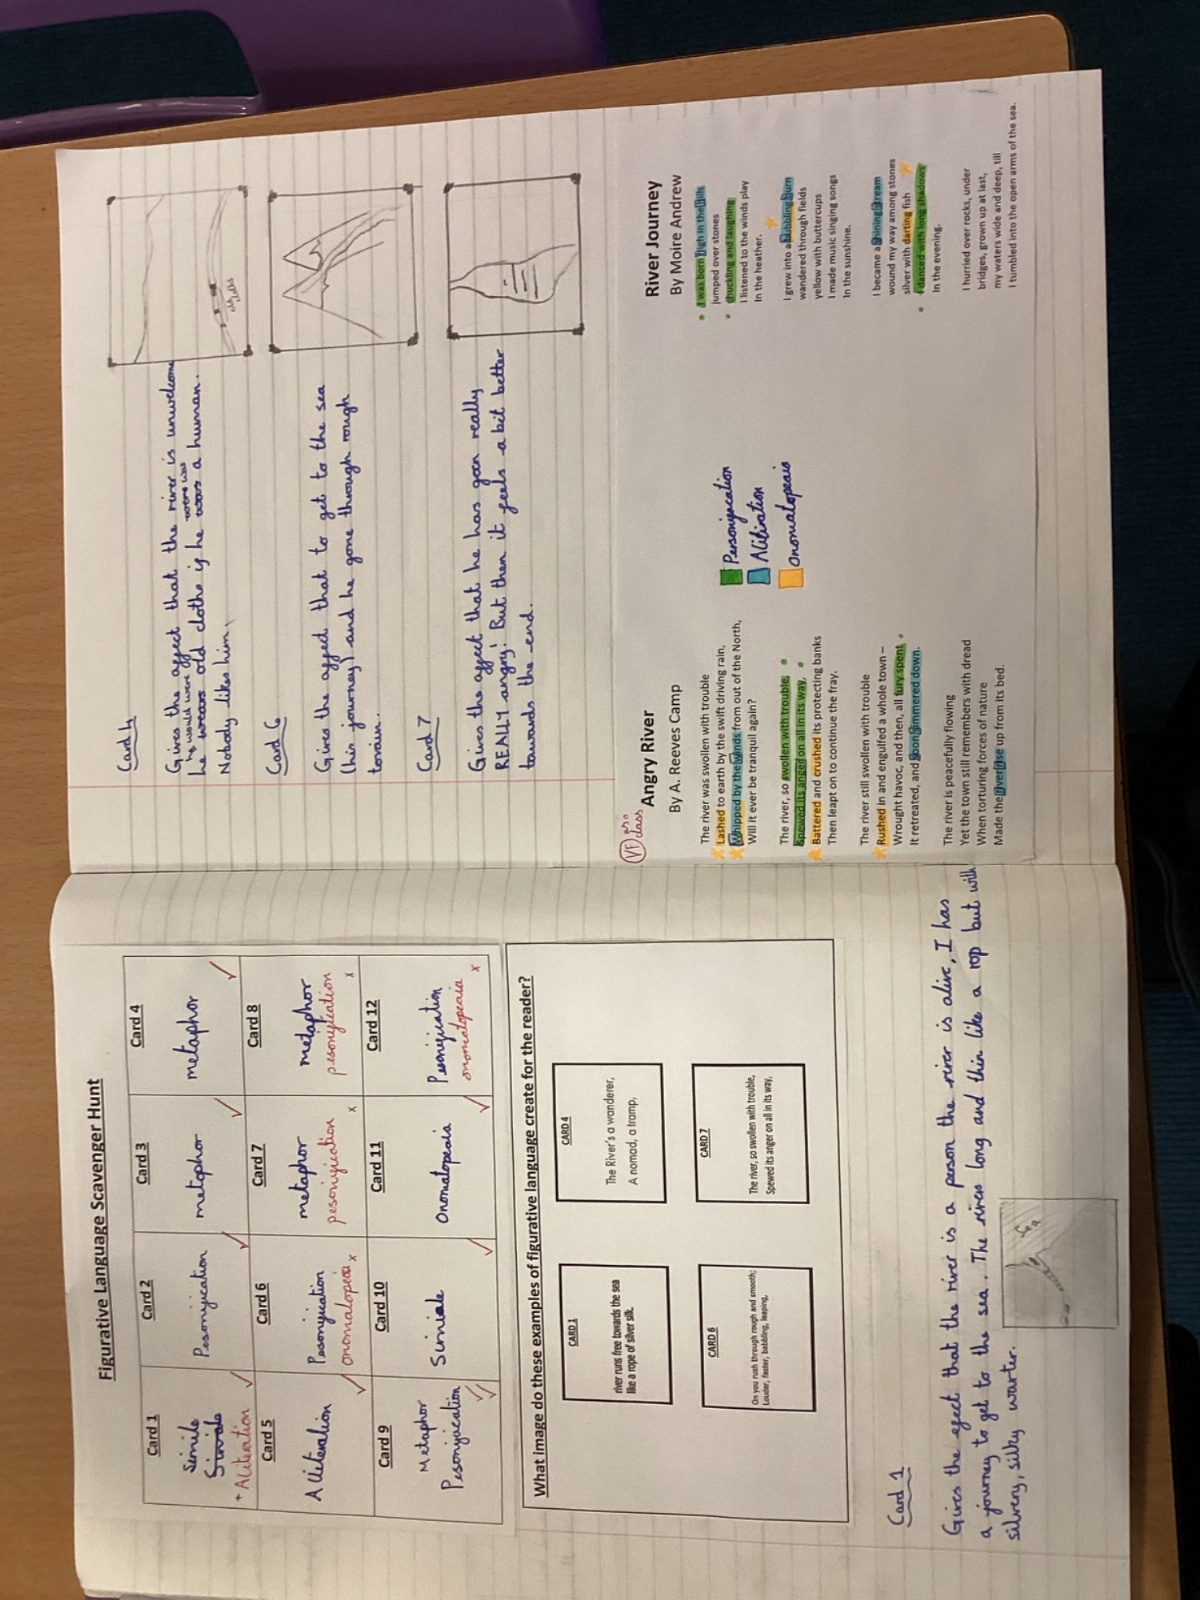 Figurative Language Scavenger Hunt
Card 1
Simile
Simale
+ Aliteration
Card 2
Pesonification
Card 3
metaphor
Card 4
metaphor
Card 5
Aliteration
Card 6
Pesonification
onomatopeia x
Card 7
metaphor
pesonification x
Card 8
metaphor
pesonification x
Card 9
Metaphor
Pesonification
Card 10
Simiale
Card 11
Onomatopeaia
Card 12
Pesonification
onomatopeaia x
What image do these examples of figurative language create for the reader?
CARD 1
river runs free towards the sea
like a rope of silver silk.
CARD 4
The River's a wanderer,
A nomad, a tramp,
CARD 6
On you rush through rough and smooth;
Louder, faster, babbling, leaping,
CARD 7
The river, so swollen with trouble,
Spewed its anger on all in its way,
Card 1
Gives the efect that the river is a person the river is alive, I has
a journey to get to the sea. The rivers long and thin like a rop but with
silvery, silky warter.
Sea
Card 4
Gives the affect that the river is unwelcome
he would were were was
he old clothe if he was a human.
Nobody likes him.
old clothe
Card 6
Gives the affect that to get to the sea
(his journey) and he gone through rough
terain.
Card 7
Gives the affect that he has goen really
REALLY angry! But then it feels a bit better
towards the end.
VF as a class
Angry River
By A. Reeves Camp
The river was swollen with trouble
Lashed to earth by the swift driving rain,
Whipped by the winds from out of the North,
Will it ever be tranquil again?
The river, so swollen with trouble,
Spewed its anger on all in its way,
Battered and crushed its protecting banks
Then leapt on to continue the fray.
The river still swollen with trouble
Rushed in and engulfed a whole town –
Wrought havoc, and then, all fury spent
It retreated, and soon simmered down.
The river is peacefully flowing
Yet the town still remembers with dread
When torturing forces of nature
Made the river rise up from its bed.
Pesonification
Alitiration
Onomatopeais
River Journey
By Moire Andrew
I was born high in the hills
jumped over stones
chuckling and laughing;
I listened to the winds play
In the heather.
I grew into a bibbling burn
wandered through fields
yellow with buttercups
I made music singing songs
In the sunshine.
I became a shining stream
wound my way among stones
silver with darting fish
I danced with long shadows
In the evening.
I hurried over rocks, under
bridges, grown up at last,
my waters wide and deep, till
I tumbled into the open arms of the sea.